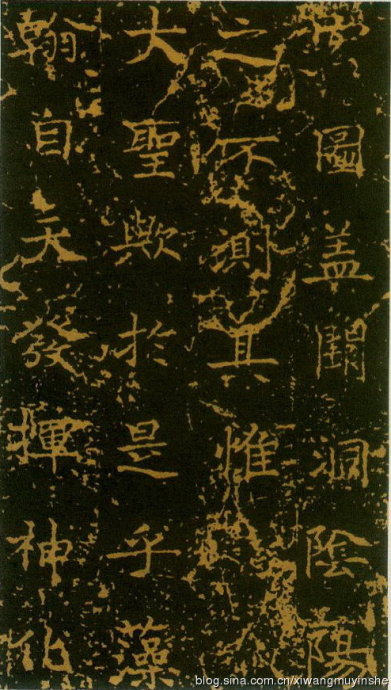 圖盖洞陰陽
之不測其惟
大聖歟於是乎藻
翰自天發揮神化
blog.sina.com.cn/xiwangmuyinshe